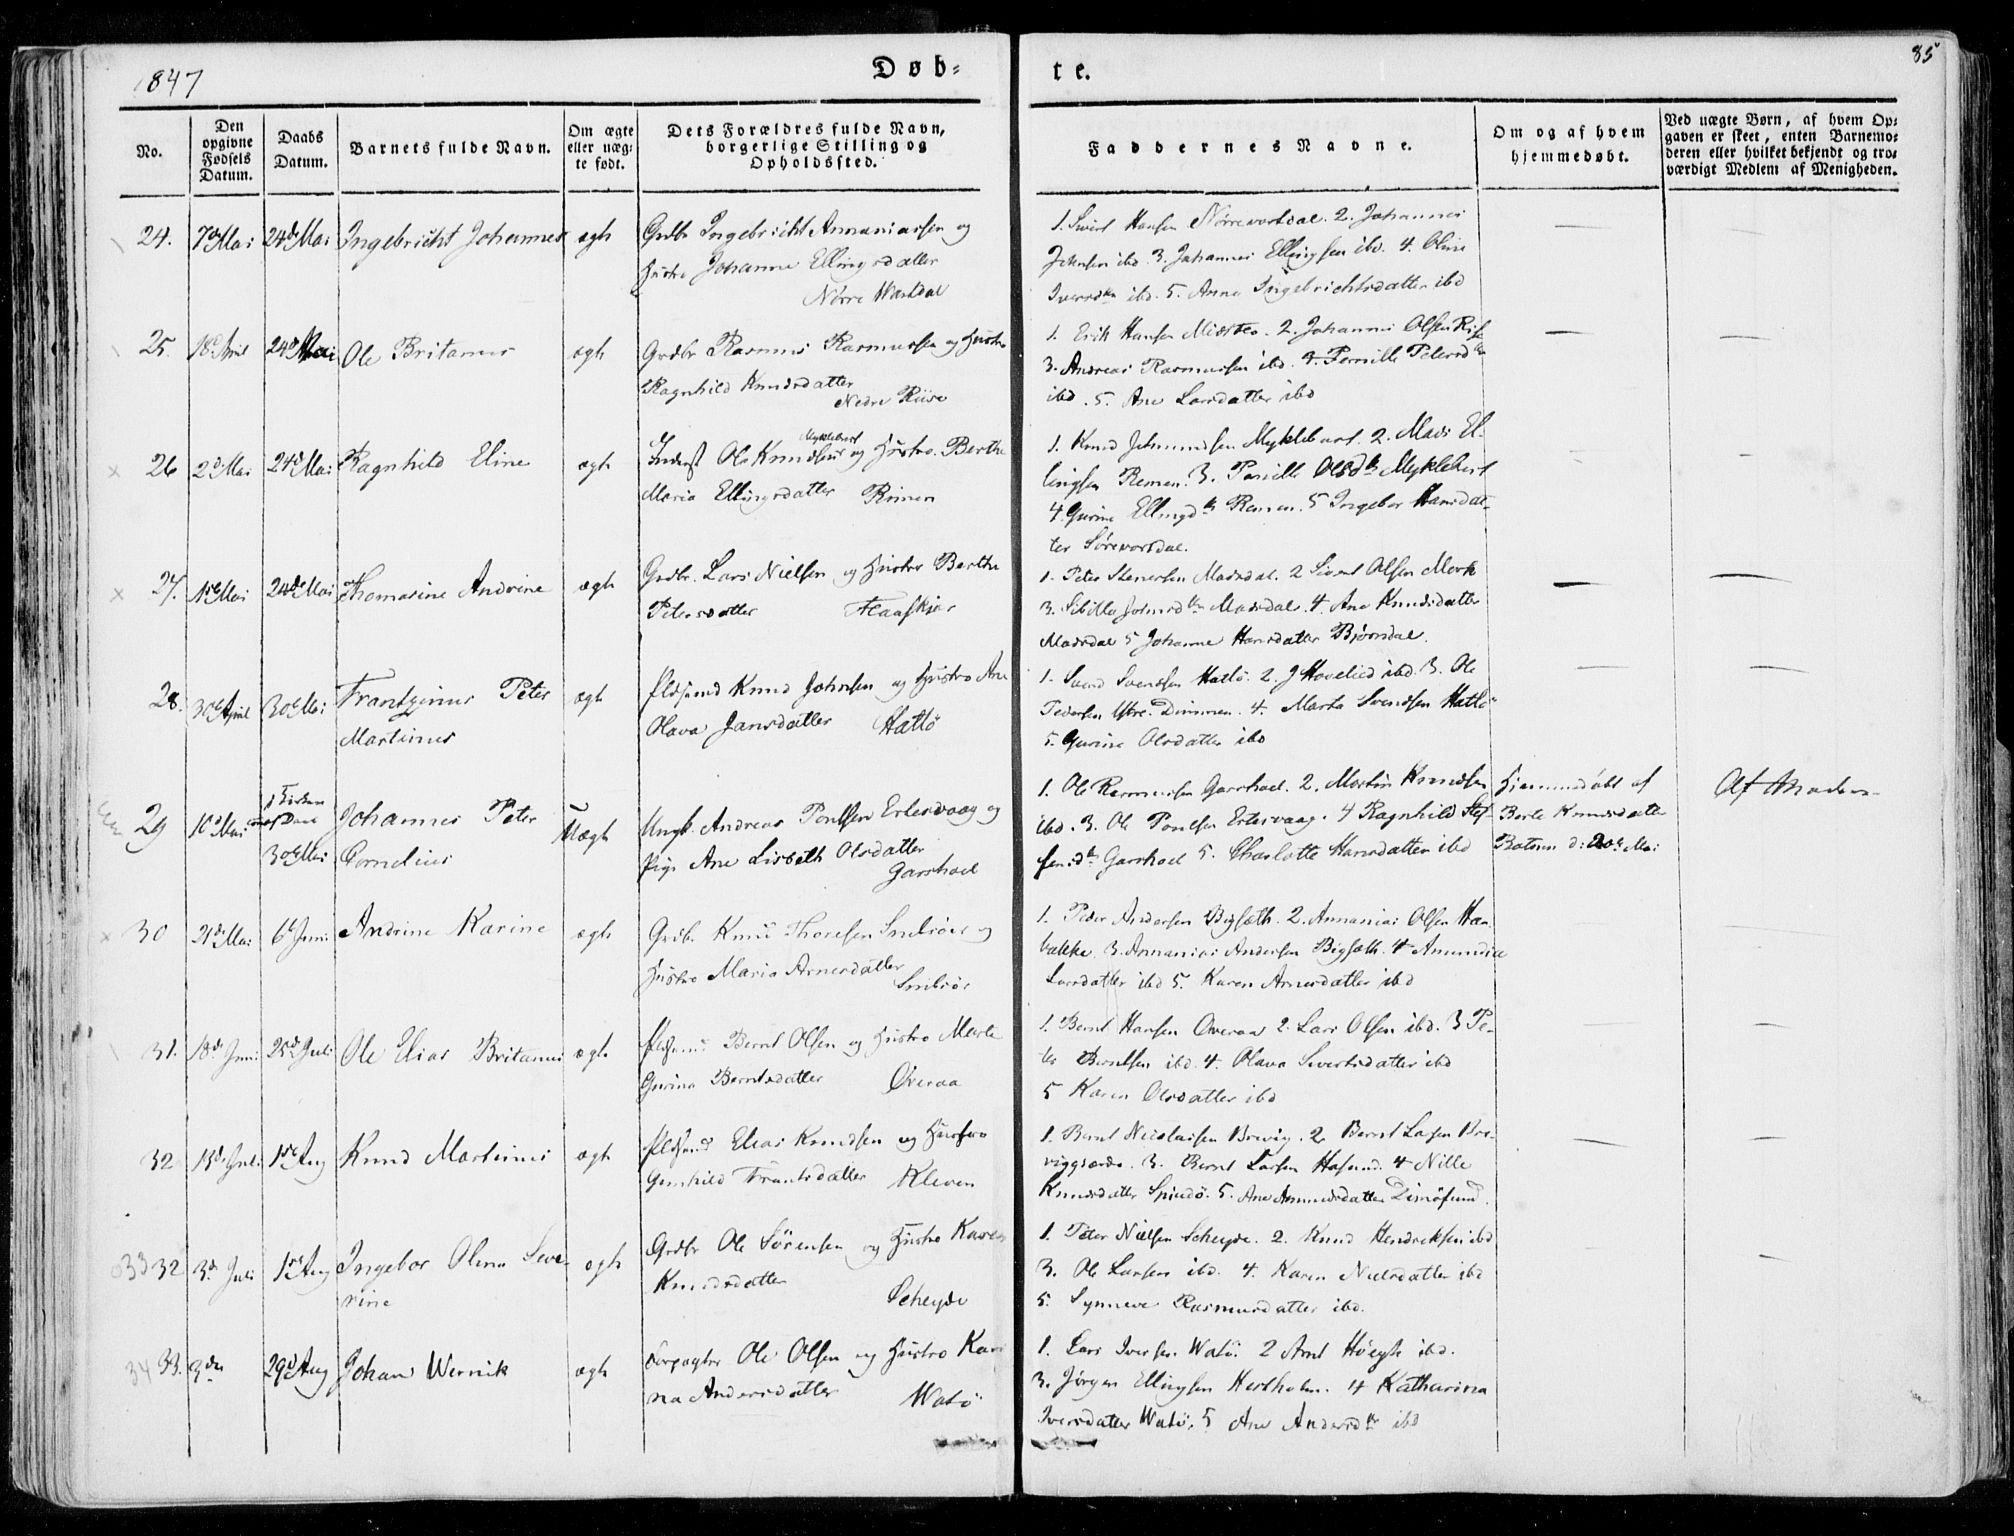 1847
Døb=
te.
85
No.
Den opgivne Fødsels Datum.
Daabs Datum.
Barnets fulde Navn.
Om ægte eller uæg= te født.
Dets Forældres fulde Navn, borgerlige Stilling og Opholdssted.
Faddernes Navne.
Om og af hvem hjemmedøbt.
Ved uægte Børn, af hvem Op= gaven er skeet, enten Barnemo= deren eller hvilket bekjendt og tro= værdigt Medlem af Menigheden.
24. 7de Mai 24de Mai Ingebricht Johannes ægte Grdbr Ingebricht Annaniassen og
Hustro Johanne Ellingsdatter
Nørre Wartdal
1. Sivert Hansen Nørrevartdal. 2. Johannes
Johnsen ibd. 3. Johannes Ellingsen ibd. 4. Oline
Iversdtr ibd. 5. Anne Ingebrichtsdatter ibd
25. 18de April 24de Mai Ole Britanus ægte Grdbr Rasmus Rasmussen og Hustro
Ragnhild Knudsdatter
Nedre Riise
1. Erik Hansen 2. Johannes Olsen Riise
3. Andreas Rasmussen ibd. 4. Pernille Petersdtr
ibd. 5. Ane Larsdatter ibd
26 2de Mai 24de Mai Ragnhild Eline ægte Inderst Ole Knudsen Myklebust og Hustro Berthe
Maria Ellingsdatter Rimen
1. Knud Johnnsen Myklebust. 2. Mads El-
lingsen Remen. 3. Pernille Olsdtr Myklebust
4. Gurine Ellingsdtr Remen. 5 Ingebor Hansdat-
ter Sørevartdal.
27. 1ste Mai 24de Mai Thomasine Andrine ægte Grdbr. Lars Nielsen og Hustro Berthe
Petersdatter Flaaskjær
1. Peter Stenersen Masdal. 2 Sivert Olsen Mork
3. Sibilla Masdal. 4. Ane Knudsdatter
Masdal 5 Johanne Hansdatter Bjørndal.
28. 30te April 30te Mai Frantzinus Peter
Martinus ægte Pldsmd Knud Johnsen og Hustro Ane
Olava Jansdatter Hatlø
1. Svend Svendsen Hatlø. 2. J Hovelid ibd. 3. Ole
Pedersen Ytre Dimmen. 4. Marta Svendsen Hatlø
5. Gurine Olsdatter ibd
29 10de Mai 30te Mai Johannes Peter
Cornelius Uægte Ungk. Andreas Poulsen Ertesvaag og
Pige Ane Lisbeth Olsdatter
Garshoel
1. Ole Rasmussen Garshoel. 2. Martin Knudsen
ibd. 3. Ole Poulsen Ertesvaag. 4 Ragnhild Stef-
fensdtr Garshoel 5. Charlotte Hansdatter ibd
Hjemmedøbt af
Berte Knudsdatter
Botnen d: 20de Mai
Af Moderen
30 21de Mai 6te Juni Andrine Karine ægte Grdbr Knud Thoresen Snibsøer og
Hustro Maria Arnesdatter
Snibsør
1. Peder Andersen Bigsæth. 2. Annanias Olsen Hæ-
bække. 3. Annanias Andersen Bigsæth. 4 Amundine
Larsdatter ibd 5. Karen Arnesdatter ibd
31. 18de Juni 25de Juli Ole Elias Britanus ægte Plsmd Bernt Olsen og Hustro Marte
Gurina Berntsdatter Øveraa
1. Bernt Hansen Øveraa 2. Lars Olsen ibd. 3 Pe-
ter Berntsen ibd. 4. Olava Sivertsdatter ibd
5 Karen Olsdatter ibd
32 13de Juli 1ste Aug Knud Martinus ægte Pldsmd Elias Knudsen og Hustro
Gunhild Frantsdatter Kleven
1. Bernt Nicolaisen Brevig. 2. Bernt Larsen Bre-
viggjerde. 3. Bernt Larsen Hasund. 4 Nille
Knudsdatter 5. Ane Dimøsund.
33 32 3de Juli 1ste Aug Ingebor Olina Seve-
rine ægte Grdbr Ole Sørensen og Hustro Karen
Knudsdatter
Scheyde
1. Peter Nielsen Scheyde. 2. Knud Hendriksen ibd
3. Ole Larsen ibd. 4. Karen Nielsdatter ibd
5. Synneve Rasmusdatter ibd.
34 33. 3de 29de Aug Johan Wernik ægte Forpagter Ole Olsen og Hustro Kari-
na Andersdatter
Watø
1. Lars Iversen Watø. 2 Arnt Høegh ibd.
3. Jørgen Ellingsen Hestholm. 4 Katharina
Iversdatter Watø. 5 Ane Andersdtr ibd